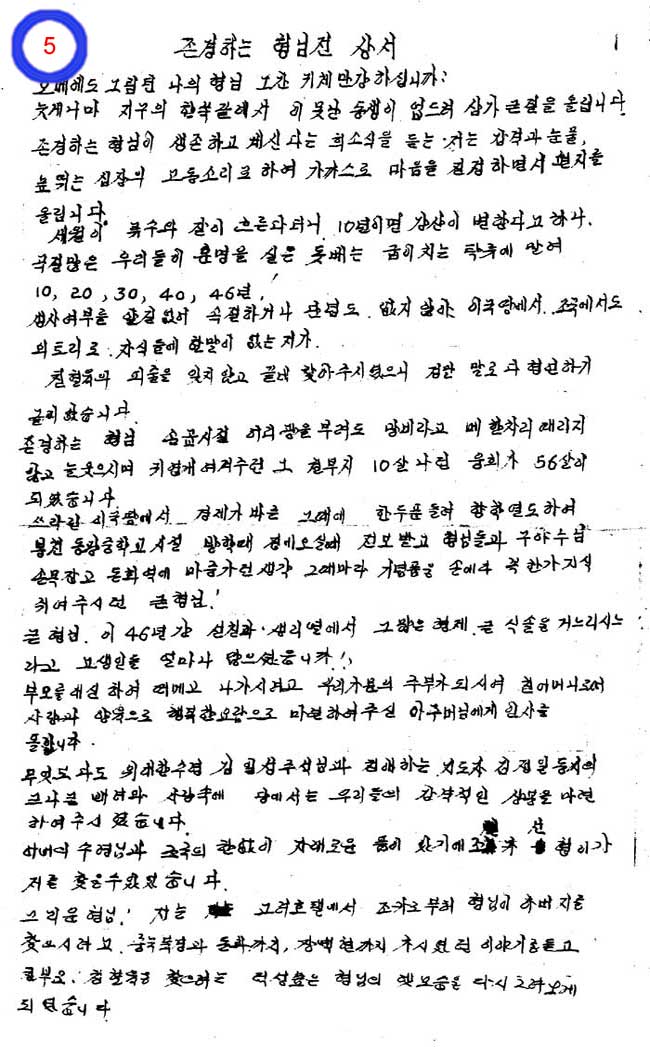 5
존경하는 형님전 상서
1
오매에도 그립던 나의 형님 그간 기체만강하십니까?
늦게나마 지구의 한쪽끝에서 이 못난 동생이 엎드려 삼가 큰절을 올립니다.
존경하는 형님이 생존하고 계신다는 희소식을 들는 저는 감격과 눈물,
높뛰는 심장의 고동소리로 하여 가까스로 마음을 진정하면서 편지를
올립니다.
세월이 륙수와 같이 흐른다더니 10년이면 강산이 변한다고 하나.
곡절많은 우리들의 운명을 실은 돛배는 굽이치는 탁류에 안여
10, 20, 30, 40, 46년,
생사여부를 알길 없어 속절하거나 단념도 없지 않아 이국땅에서. 조국에서도
외토리로 자식들에 한말이 없는 저가.
친혈육의 피줄을 잊지 않고 끝내 찾아주시였으니 정말 말로 다 형언하기
곤란했습니다.
존경하는 형님 소꿉시절 어리광을 부려도 망비라고 메 한차리 때리지
않고 눈웃으시며 귀엽게 여겨주던 그 철부지 10살 나던 웅희가 56살이
되였습니다
쓰라린 이국땅에서 경제가 바쁜 그때에 한두푼 들려 향학열도 하여
봉천 동광중학교시절 방학때 정에 오실때 전보 받고 형님들과
손목잡고 돈화역에 마중가던 생각 그때마다 기념품을 손에다 꼭 한가지씩
쥐여주시던 큰형님!
큰형님. 이 46년간 선친과 생리별에서 그 많은 형제, 큰 식솔을 거느리시느
라고 고생인들 얼마나 많으셨습니까!
부모를 대신하여 떠메고 나가시려고 우리가문의 주부가 되시여 친어머니로서
사랑과 양육으로 행복한 요람으로 마련하여주신 아주버님에게 인사를
올립니다.
무엇보다도 위대한 수령 김일성주석님과 친애하는 지도자 김정일동지의
크나큰 배려와 사랑속에 당에서는 우리들의 감격적인 상봉을 마련
하여주시였습니다.
아버지 수령님과 조국의 한없이 자애로운 품이 있기에 조선 형이가
저를 찾을수있었습니다.
그리운 형님! 저는 고려호텔에서 조카로부터 형님이 아버지를
찾으시려고 중국북경과 돈화까지, 장백현까지 가시였던 이야기를 듣고
큰부모, 친혈육을 찾으려는 력성은 형님의 옛모습을 다시 그려보게
되였습니다